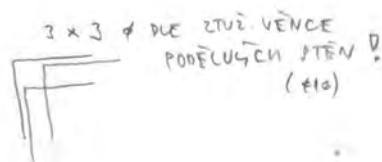 3 × 3 ϕ DLE ZTUŽ. VĚNCE
PODÉLNÝCH STĚN !
(ϕ10)